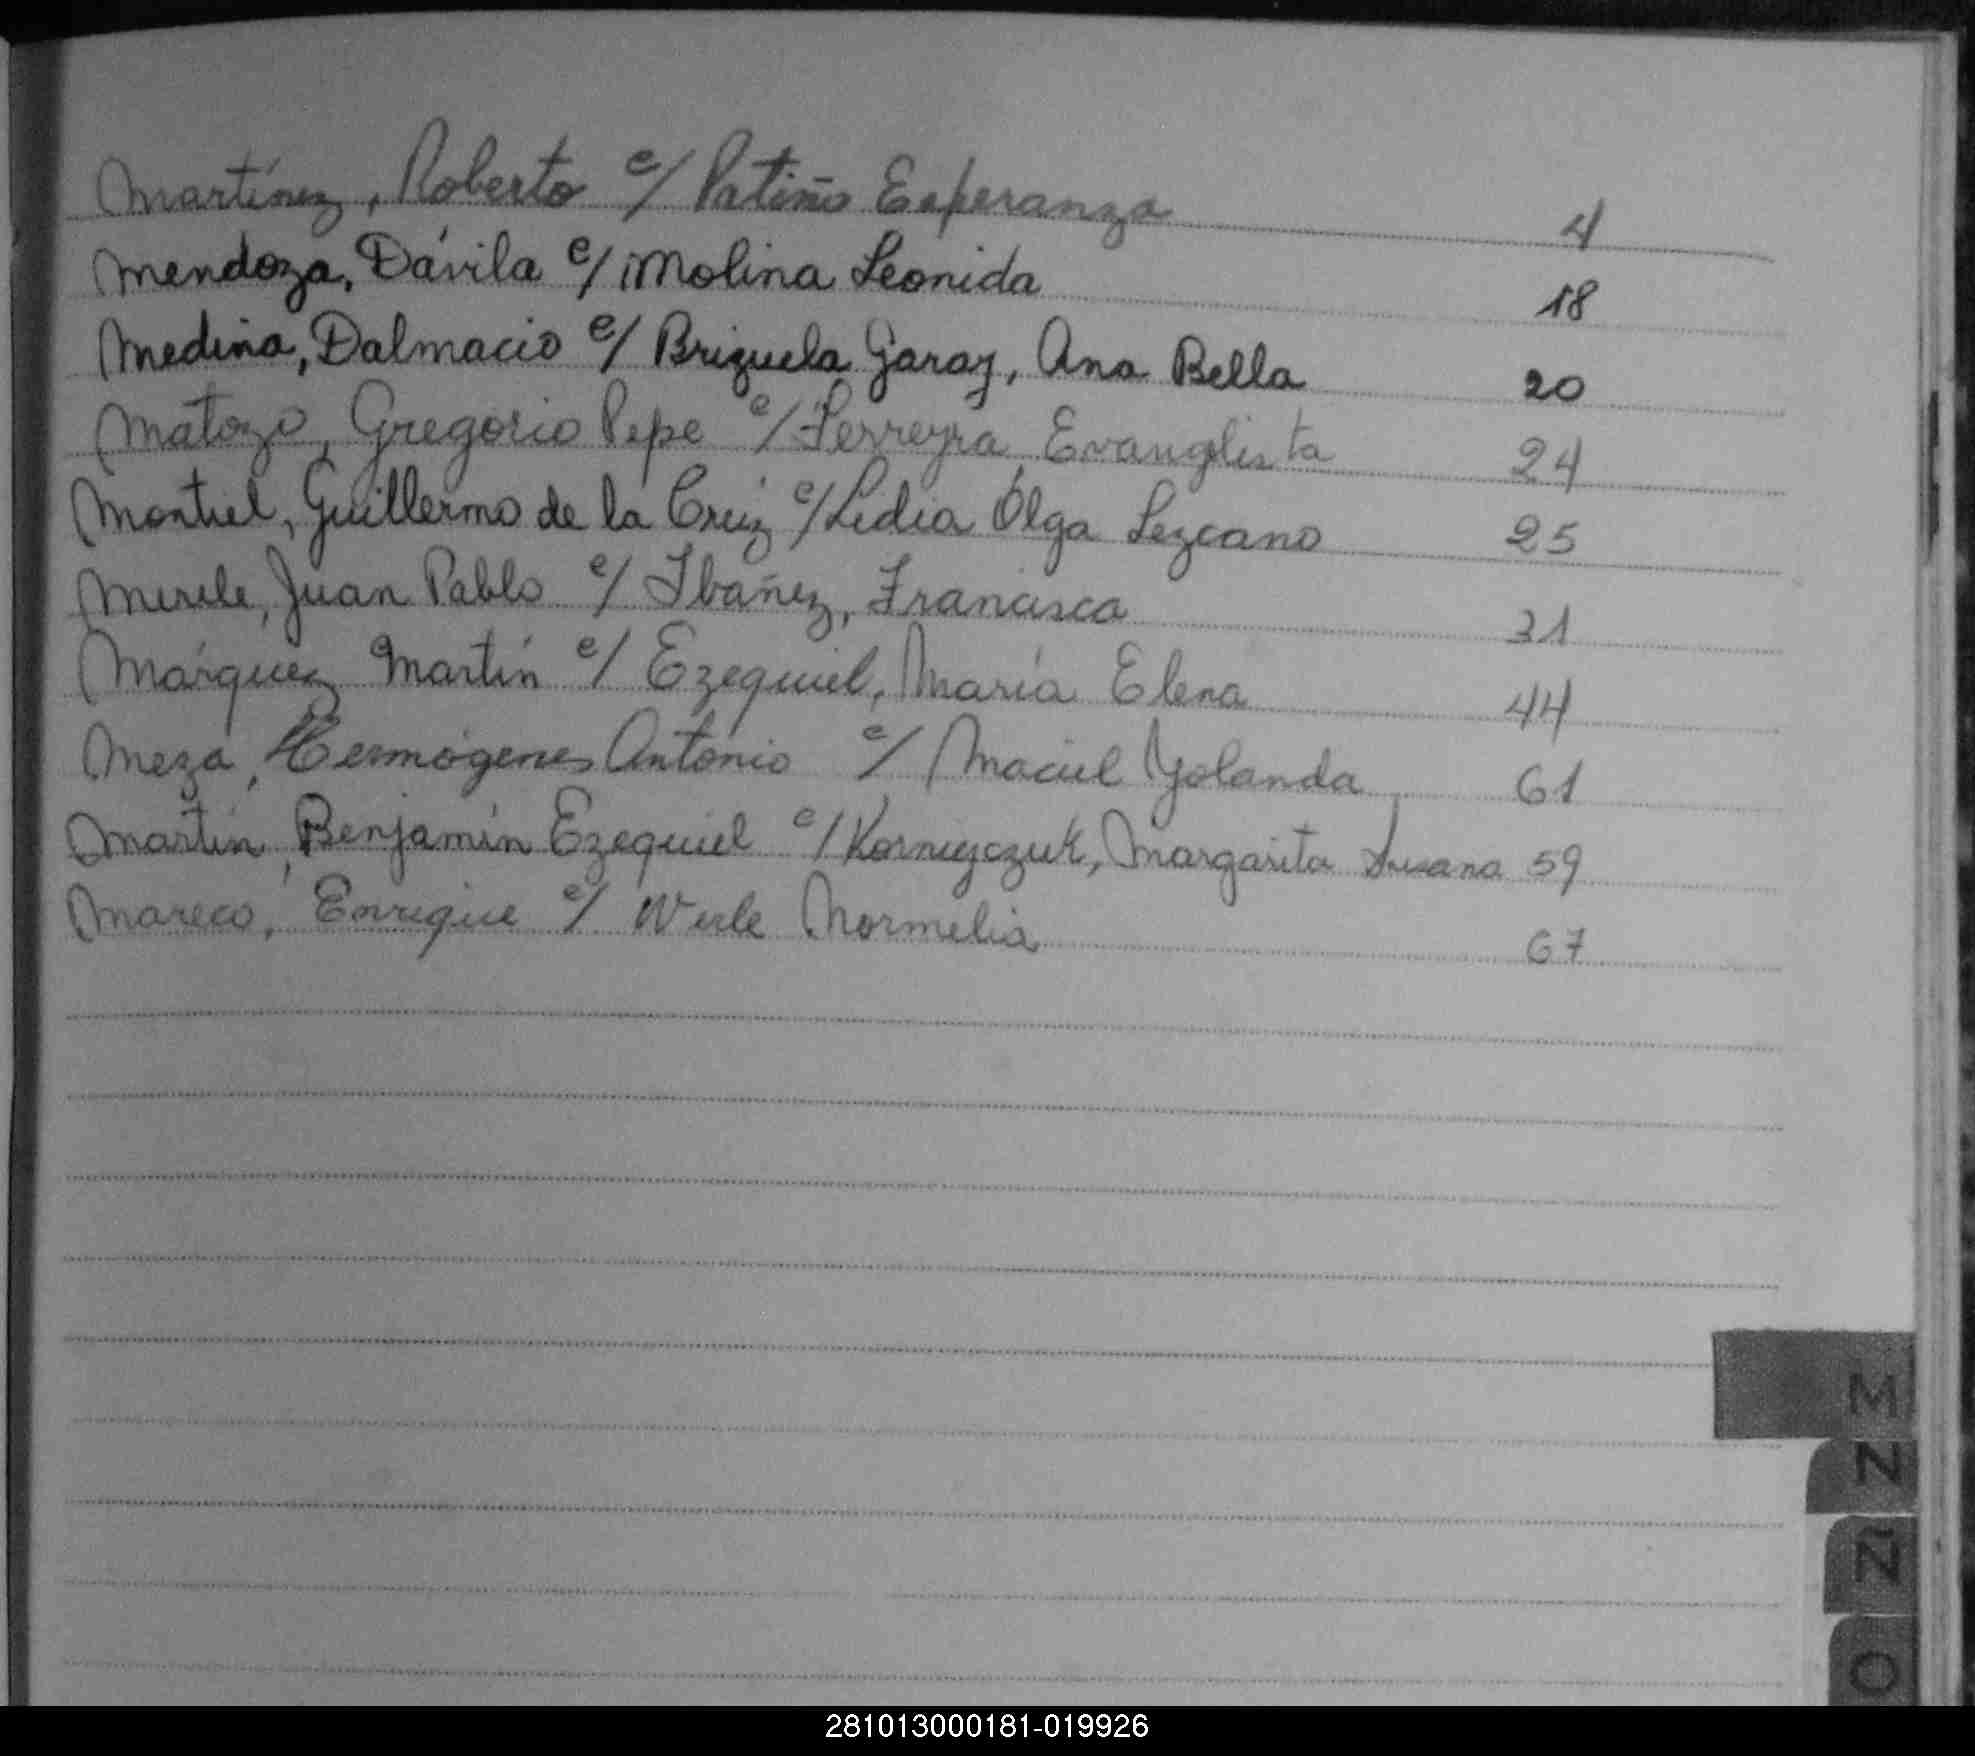 Martínez, Roberto c/ Patiño Esperanza 4
Mendoza, Dávila c/ Molina Leonida 18
Medina, Dalmacio c/ Brizuela Garay, Ana Bella 20
Matozo, Gregorio Pepe c/ Ferreyra Evanglista 24
Montiel, Guillermo de la Cruz c/ Lidia Olga Lezcano 25
Merele, Juan Pablo c/ Ibañez, Francisca 31
Márquez Martín c/ Ezequiel, María Elena 44
Meza, Hermógenes Antonio c/ Maciel Yolanda 61
Martín, Benjamín Ezequiel c/ Korneyczuk, Margarita Susana 59
Mareco, Enrique c/ Werle Normelia 67
M
N
Ñ
O
281013000181-019926